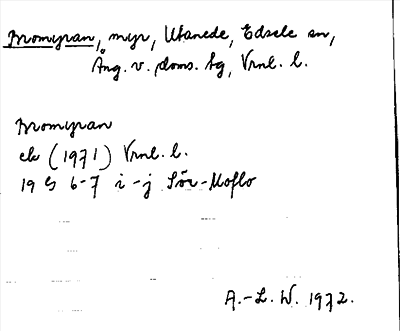 Bromyran, myr, Utanede, Edsele sn,
Ång. v. doms. tg, Vrnl. l.
Bromyran
ek (1971) Vrnl. l.
19 G 6-7 i-j Sör-Moflo
A.-L. W. 1972.